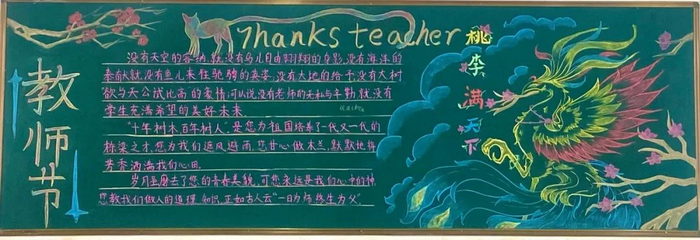 教师节
Thanks teacher
没有天空的容纳,就没有鸟儿自由翱翔的身影,没有海洋的
奉献就没有鱼儿来往驰骋的英姿,没有大地的给予没有大树
欲与天公试比高的豪情,可以说没有老师的无私与辛勤,就没有
学生充满希望的美好未来.
"十年树木,百年树人",是您为祖国培养了一代又一代的
栋梁之才,您为我们遮风避雨,您甘心做木兰,默默地将
芳香洒满我们心田.
岁月虽磨去了您的青春美貌,可您永远是我们心中的神,
您教我们做人的道理,知识,正如古人云"一日为师终生为父"
桃李满天下